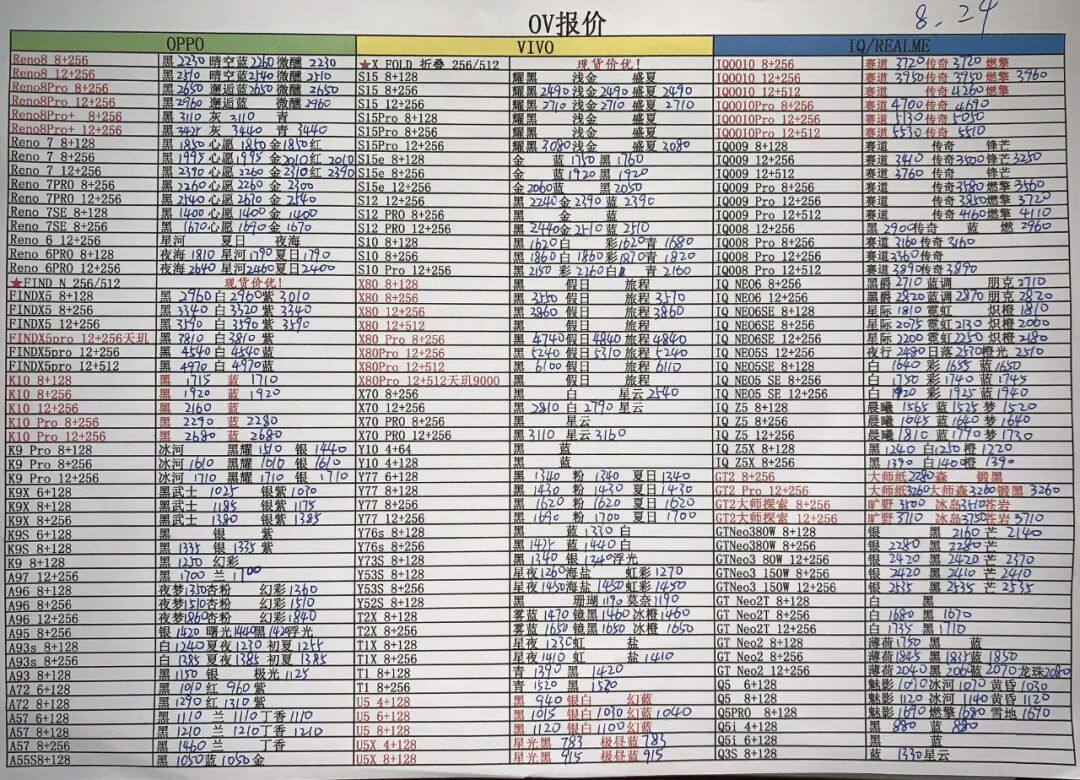 8.24
OV报价
OPPO
Reno8 8+256 黑 2230 晴空蓝 2260 微醺 2230
Reno8 12+256 黑 2510 晴空蓝 2540 微醺 2510
Reno8Pro 8+256 黑 2650 邂逅蓝 2650 微醺 2650
Reno8Pro 12+256 黑 2960 邂逅蓝 微醺 2960
Reno8Pro+ 8+256 黑 3110 灰 3110 青
Reno8Pro+ 12+256 黑 灰 3440 青 3440
Reno 7 8+128 黑 1850 心愿 1850 金 1850 红
Reno 7 8+256 黑 1995 心愿 1995 金 2010 红 2010
Reno 7 12+256 黑 2390 心愿 2260 金 2310 红 2390
Reno 7PRO 8+256 黑 2260 心愿 2260 金 2300
Reno 7PRO 12+256 黑 2540 心愿 2670 金 2540
Reno 7SE 8+128 黑 1400 心愿 1400 金 1400
Reno 7SE 8+256 黑 1670 心愿 1690 金 1670
Reno 6 12+256 星河 夏日 夜海
Reno 6PRO 8+128 夜海 1810 星河 1790 夏日 1790
Reno 6PRO 12+256 夜海 2640 星河 2460 夏日 2400
★FIND N 256/512 现货价优!
FINDX5 8+128 黑 2960 白 2960 紫 3010
FINDX5 8+256 黑 3340 白 3320 紫 3340
FINDX5 12+256 黑 3590 白 3590 紫 3590
FINDX5pro 12+256天玑 黑 3810 白 3810 紫
FINDX5pro 12+256 黑 4540 白 4540 蓝
FINDX5pro 12+512 黑 4970 白 4970 蓝
K10 8+128 黑 1715 蓝 1710
K10 8+256 黑 1920 蓝 1920
K10 12+256 黑 2160 蓝
K10 Pro 8+256 黑 2290 蓝 2280
K10 Pro 12+256 黑 2680 蓝 2680
K9 Pro 8+128 冰河 黑耀 1510 银 1440
K9 Pro 8+256 冰河 1610 黑耀 1610 银 1610
K9 Pro 12+256 冰河 1710 黑耀 1710 银 1710
K9X 6+128 黑武士 1025 银紫 1070
K9X 8+128 黑武士 1185 银紫 1175
K9X 8+256 黑武士 1380 银紫 1385
K9S 6+128 黑 银 紫
K9S 8+128 黑 1335 银 1335 紫
K9 8+128 黑 1250 幻彩
A97 12+256 黑 1700 兰 1700
A96 8+128 夜梦 1350 杏粉 幻彩 1360
A96 8+256 夜梦 1510 杏粉 幻彩 1510
A96 12+256 夜梦 1860 杏粉 幻彩 1840
A95 8+256 银 1420 曙光 1440 黑 1420 浮光
A93s 8+128 白 1240 夏夜 1230 初夏 1255
A93s 8+256 白 1385 夏夜 1385 初夏 1385
A93 8+128 黑 1150 银 极光 1125
A72 6+128 黑 1010 红 960 紫
A72 8+128 黑 1290 红 1310 紫
A57 6+128 黑 1110 兰 1110 丁香 1110
A57 8+128 黑 1210 兰 1210 丁香 1210
A57 8+256 黑 1460 兰 丁香
A55S8+128 黑 1050 蓝 1050 金
VIVO
★X FOLD 折叠 256/512 现货价优!
S15 8+128 耀黑 浅金 盛夏
S15 8+256 耀黑 2490 浅金 2490 盛夏 2490
S15 12+256 耀黑 2710 浅金 2710 盛夏 2710
S15Pro 8+128 耀黑 浅金 盛夏
S15Pro 8+256 耀黑 浅金 盛夏
S15Pro 12+256 耀黑 3080 浅金 盛夏 3080
S15e 8+128 金 蓝 1750 黑 1760
S15e 8+256 金 蓝 1920 黑 1920
S15e 12+256 金 2060 蓝 黑 2050
S12 12+256 黑 2240 金 2390 蓝 2390
S12 PRO 8+256 黑 金 蓝
S12 PRO 12+256 黑 2440 金 2510 蓝 2510
S10 8+128 黑 1620 白 彩 1620 青 1680
S10 8+256 黑 1860 白 1860 彩 1870 青 1820
S10 Pro 12+256 黑 2150 彩 2260 白 青 2160
X80 8+128 黑 假日 旅程
X80 8+256 黑 3550 假日 旅程 3570
X80 12+256 黑 3860 假日 旅程 3860
X80 12+512 黑 假日 旅程
X80 Pro 8+256 黑 4740 假日 4840 旅程 4840
X80Pro 12+256 黑 5240 假日 5310 旅程 5240
X80Pro 12+512 黑 6100 假日 旅程 6110
X80Pro 12+512天玑9000 黑 假日 旅程
X70 8+256 黑 白 星云 2540
X70 12+256 黑 2810 白 2790 星云
X70 PRO 8+256 黑 星云
X70 PRO 12+256 黑 3110 星云 3160
Y10 4+64 黑 蓝
Y10 4+128 黑 蓝
Y77 6+128 黑 1340 粉 1340 夏日 1340
Y77 8+128 黑 1430 粉 1430 夏日 1430
Y77 8+256 黑 1620 粉 1620 夏日 1620
Y77 12+256 黑 1690 粉 1700 夏日 1700
Y76s 8+128 黑 蓝 1330 白
Y76s 8+256 黑 蓝 1440 白
Y73S 8+128 黑 1340 银 1340 浮光
Y53S 8+128 星夜 1260 海盐 虹彩 1270
Y53S 8+256 星夜 1450 海盐 1450 虹彩 1450
Y52S 8+128 黑 珊瑚 1190 莫奈 1190
T2X 8+128 雾蓝 1470 镜黑 1460 冰橙 1460
T2X 8+256 雾蓝 1650 镜黑 1650 冰橙 1650
T1X 8+128 星夜 1230 虹 盐
T1X 8+256 星夜 1410 虹 盐 1410
T1 8+128 青 1390 黑 1420
T1 8+256 青 1520 黑 1520
U5 4+128 黑 940 银白 幻蓝
U5 6+128 黑 1015 银白 1030 幻蓝 1040
U5 8+128 黑 1120 银白 1100 幻蓝
U5X 4+128 星光黑 783 极昼蓝 783
U5X 8+128 星光黑 915 极昼蓝 915
IQ/REALME
IQOO10 8+256 赛道 3720 传奇 3720 燃擎
IQOO10 12+256 赛道 3950 传奇 3950 燃擎 3960
IQOO10 12+512 赛道 传奇 4260 燃擎
IQOO10Pro 8+256 赛道 4700 传奇 4690
IQOO10Pro 12+256 赛道 5130 传奇 5050
IQOO10Pro 12+512 赛道 5530 传奇 5510
IQOO9 8+128 赛道 传奇 锋芒
IQOO9 12+256 赛道 3410 传奇 3500 锋芒 3250
IQOO9 12+512 赛道 3760 传奇 锋芒
IQOO9 Pro 8+256 赛道 传奇 3580 燃擎 3560
IQOO9 Pro 12+256 赛道 传奇 3850 燃擎 3720
IQOO9 Pro 12+512 赛道 传奇 4160 燃擎 4110
IQOO8 12+256 黑 2900 传奇 蓝 燃 2960
IQOO8 Pro 8+256 赛道 3160 传奇 3160
IQOO8 Pro 12+256 赛道 3360 传奇
IQOO8 Pro 12+512 赛道 3890 传奇 3890
IQ NEO6 8+256 黑爵 2710 蓝调 朋克 2710
IQ NEO6 12+256 黑爵 2820 蓝调 2870 朋克 2820
IQ NEO6SE 8+128 星际 1810 霓虹 炽橙 1810
IQ NEO6SE 8+256 星际 2075 霓虹 2130 炽橙 2060
IQ NEO6SE 12+256 星际 2200 霓虹 2250 炽橙 2180
IQ NEO5S 12+256 夜行 2480 日落 2570 橙光 2510
IQ NEO5 SE 8+128 白 1640 彩 1655 蓝 1650
IQ NEO5 SE 8+256 白 1750 彩 1740 蓝 1745
IQ NEO5 SE 12+256 白 1920 彩 1925 蓝 1940
IQ Z5 8+128 晨曦 1565 蓝 1525 梦 1520
IQ Z5 8+256 晨曦 1645 蓝 1640 梦 1640
IQ Z5 12+256 晨曦 1810 蓝 1770 梦 1730
IQ Z5X 8+128 黑 1240 白 1250 橙 1220
IQ Z5X 8+256 黑 1390 白 1400 橙 1390
GT2 8+256 大师纸 2280 森 锻黑
GT2 Pro 12+256 大师纸 3260 大师森 3260 锻黑 3260
GT2大师探索 8+256 旷野 3500 冰岛 3510 苍岩
GT2大师探索 12+256 旷野 3710 冰岛 3750 苍岩 3710
GTNeo380W 8+128 银 黑 2160 芒 2140
GTNeo380W 8+256 银 2280 黑 2280 芒
GTNeo3 80W 12+256 银 2420 黑 2420 芒 2370
GTNeo3 150W 8+256 银 2420 黑 2410 芒 2410
GTNeo3 150W 12+256 银 2535 黑 2535 芒 2535
GT Neo2T 8+128 白 黑
GT Neo2T 8+256 白 1680 黑 1670
GT Neo2T 12+256 白 1735 黑 1710
GT Neo2 8+128 薄荷 1750 黑 蓝
GT Neo2 8+256 薄荷 1845 黑 1835 蓝 1850
GT Neo2 12+256 薄荷 2040 黑 2060 蓝 2070 龙珠 2080
Q5 6+128 魅影 1090 冰河 1070 黄昏 1030
Q5 8+128 魅影 1120 冰河 1140 黄昏 1120
Q5PRO 8+128 魅影 1690 燃擎 1680 雪地 1670
Q5i 4+128 黑 880 蓝 880
Q5i 6+128 黑 蓝
Q3S 8+128 蓝 1330 星云